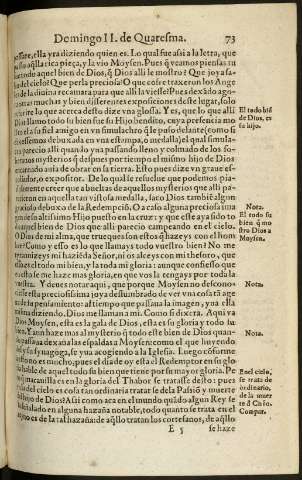 Domingo II. de Quaresma. 73
passare, ella yra diziendo quien es. Lo qual fue asi a la letra, que
passò alla rica pieça, y la vio Moysen. Pues q̃ veamos piensas tu
todo aquel bien de Dios, q̃ Dios alli le mostro? Que joya sa-
de perlas? O que cofre traxeron los Ange
de la diuina recamara para que alli la viesse? Pues dexado ago-
otras muchas y bien differentes exposiciones deste lugar, solo
lo que acerca desto dize vna glosa. Y es, que lo que alli
Dios llamo todo su bien fue su Hijo bendito, cuya presencia mo
a su fiel amigo en vn simulachro q̃ le puso delante (como si
dibuxada en vna estampa, o medalla) el qual simula-
parecio alli quando yua passando lleno y colmado de los so-
misterios q̃ despues por tiempo el mismo hijo de Dios
auia de obrar en su tierra. Esto pues dize vn graue es-
expositor. De lo qual se resuelue que podemos pia-
creer que a bueltas de aquellos mysterios que alli pa-
en aquella tan vistosa medalla, saco Dios tambien algun
debuxo de la Redempciõ. O a caso alguna preciosa ima
altissimo Hijo puesto en la cruz: y que este aya sido to
bien de Dios que alli parecio campeando en el cielo.
O Dios de mi alma, que trueques son estos q̃ hazeys con el hom
bre? Como y esso es lo que llamays todo vuestro bien? No me
y mi haziẽda Señor, ni os alceys con mi thesoro, que
el todo mi bien, y la toda mi gloria: aunque confiesso que
se me haze mas gloria, en que vos la tengays por toda la
vuestra. Y de ues notar aqui, que porque Moysen no descono-
esta preciosissima joya deslumbrado de ver vna cosa tã age
de su pensamiento: al tiempo que passaua la imagen, yua ella
diziendo. Dios me llama na mi. Como si dixera. Aqui va
Dios Moysen, esta es la gala de Dios, esta es su gloria y todo su
bien. Y aun haze mas al mysterio q̃ todo este bien de Dios quan-
passaua dexaña las espaldas a Moysen: como el que huyendo
y su Synagoga, se yua acogiendo a la Iglesia. Luego conforme
no es mucho, pues el dia de oy està el Redemptor en su glo
de aquel todo su bien que tiene por su mayor gloria. Pe
en la gloria del Thabor se tratasse desto: pues
del cielo es cosa tan ordinaria tratar se de la Passiõ y muerte
hijo de Dios? Assi como aca en el mundo quãdo algun Rey se
en alguna hazaña notable, todo quanto se trata en el
es de la tal hazaña: de aq̃llo tratan los cortesanos, de aq̃llo
E 5 se haze
El todo biẽ
de Dios, es
su hijo.
Nota.
El todo su
bien q̃ mo
stro Dios a
Moysen.
Nota.
Nota.
En el cielo,
se trata de
ordinario,
de la muer
te d̃ Ch̃ro.
Compar.